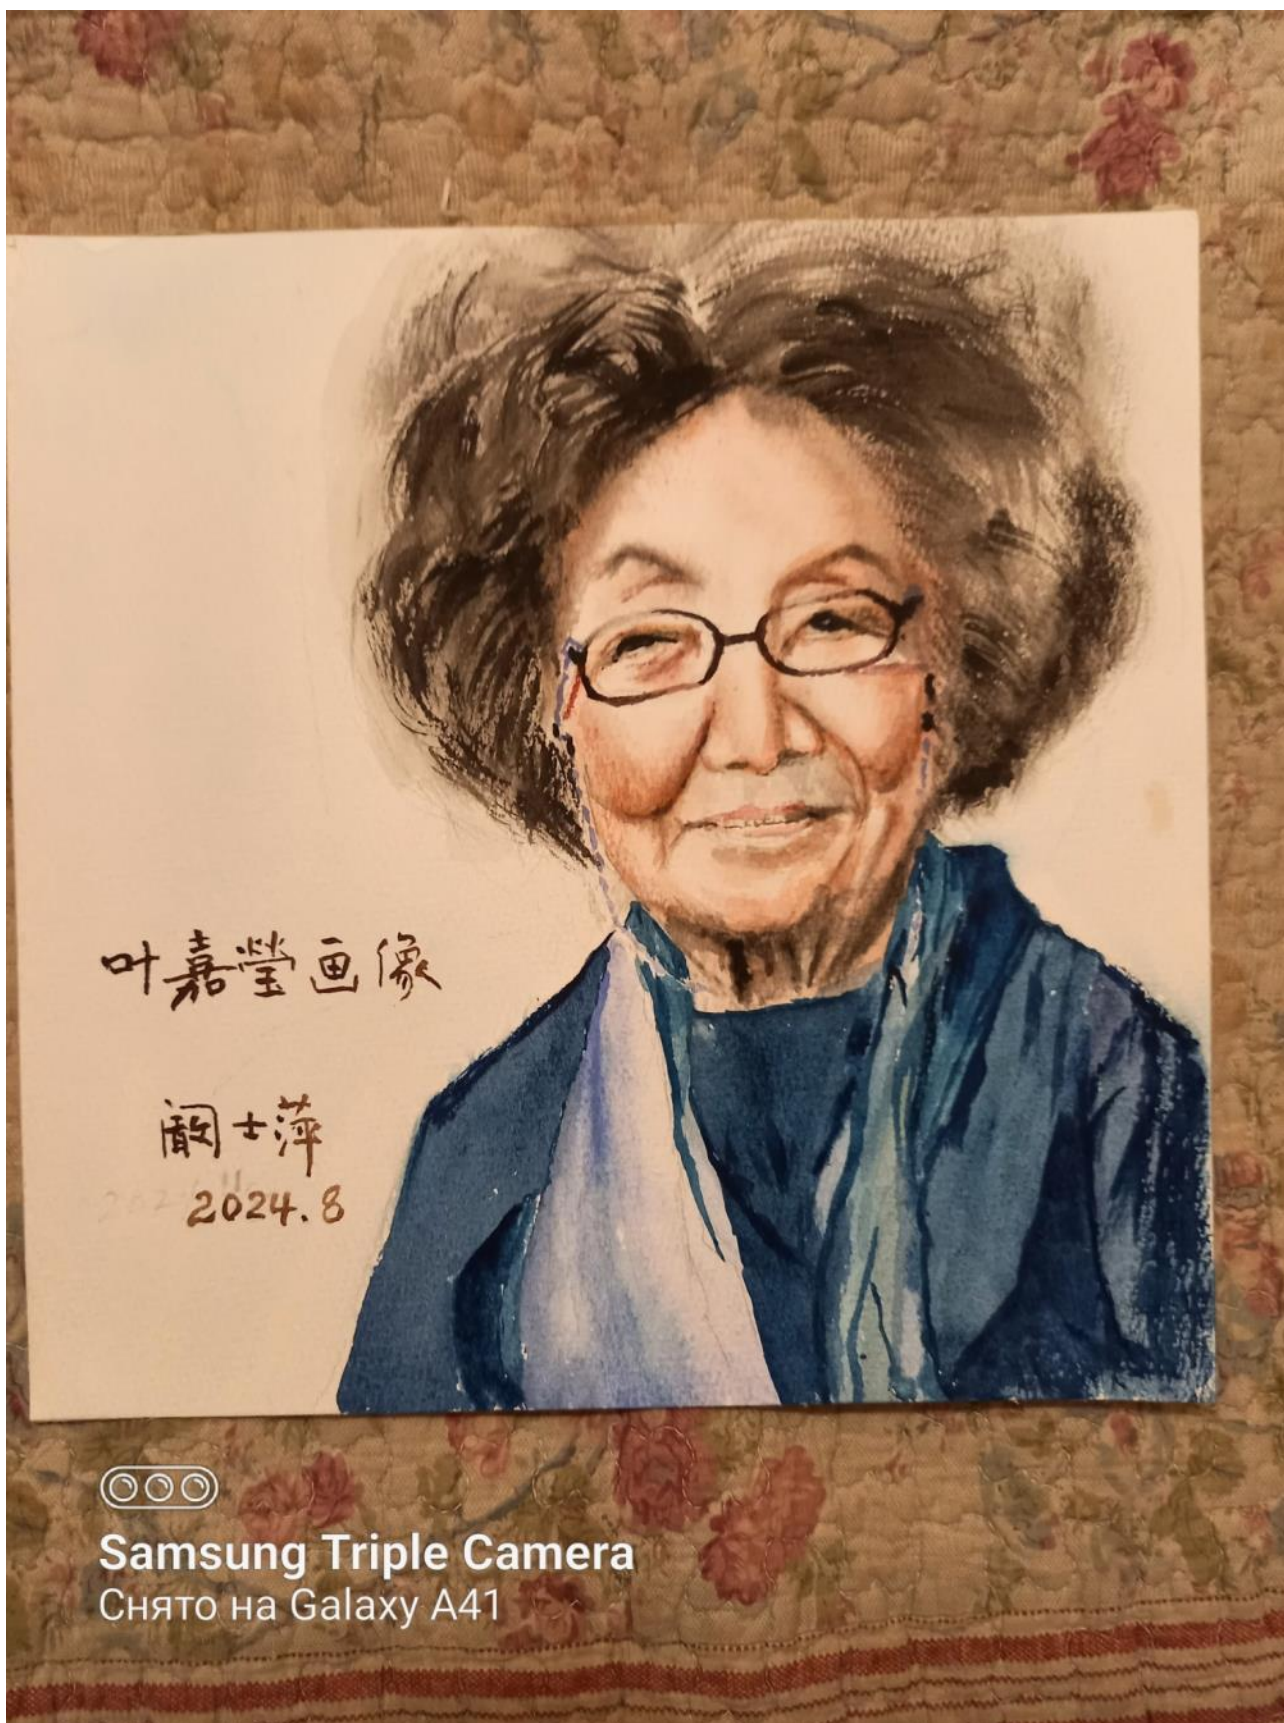 叶嘉瑩画像
阚士萍
2024.8
Samsung Triple Camera
Снято на Galaxy A41